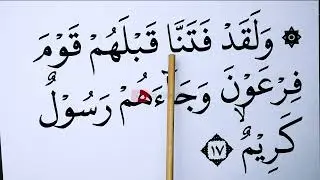 ۞ وَلَقَدْ فَتَنَّا قَبْلَهُمْ قَوْمَ
فِرْعَوْنَ وَجَاۤءَهُمْ رَسُوْلٌ
كَرِيْمٌۙ ١٧